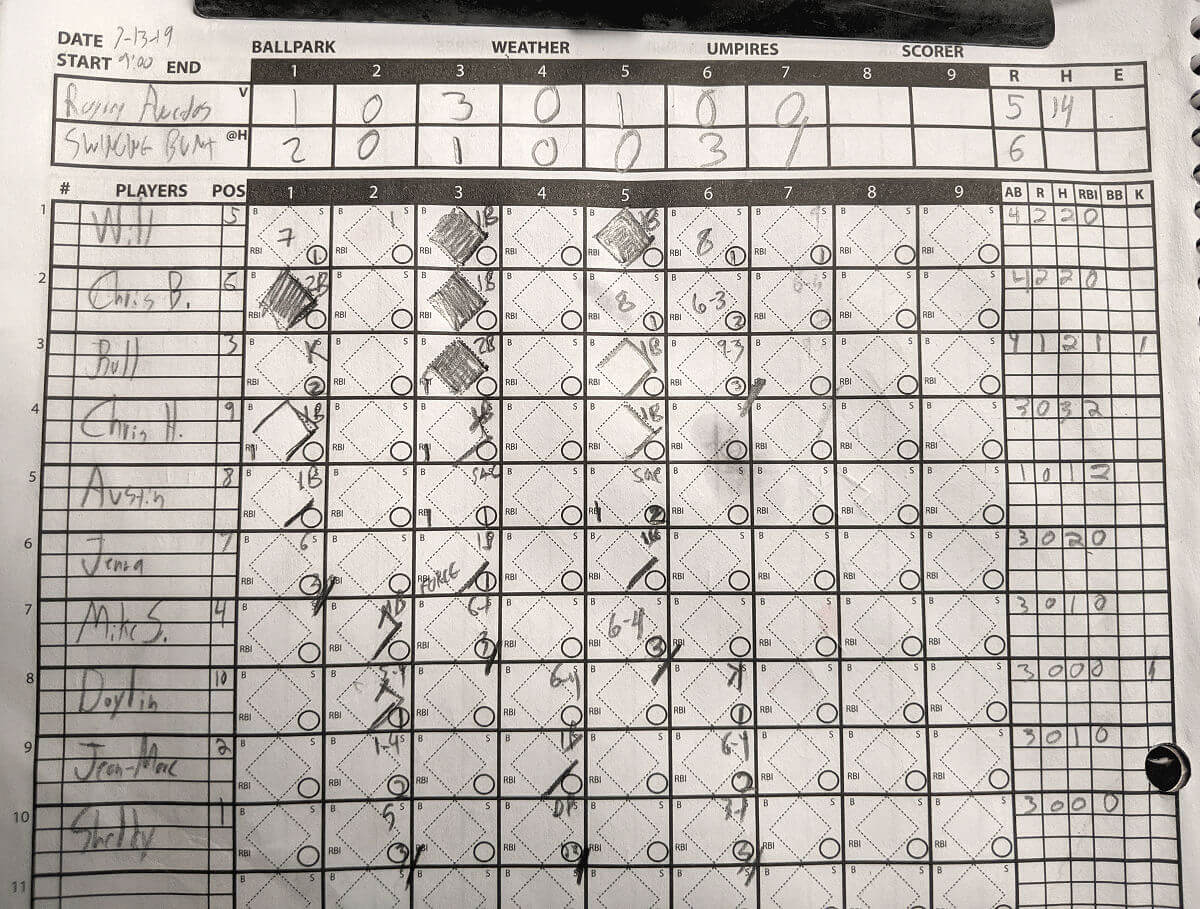 DATE 7-13-19
START 9:00 END
BALLPARK WEATHER UMPIRES SCORER
1 2 3 4 5 6 7 8 9 R H E
V 1 0 3 0 1 0 0 5 14
SWINGING BUNT @H 2 0 1 0 0 3 6
# PLAYERS POS 1 2 3 4 5 6 7 8 9 AB R H RBI BB K
1 Will 5 7 1 1B 1B 8 1 4 2 2 0
2 Chris B. 6 2B 1B 8 1 6-3 2 4 2 2 0
3 Bull 3 K 2 2B 1B 9-3 3 4 1 2 1 1
4 Chris H. 9 1B 1 1B 1 1B 3 0 3 2
5 Austin 8 1B SAC 1 1 SAC 1 2 1 0 1 2
6 Jenna 7 6 3 1B FORCE 1 1B 3 0 2 0
7 Mike S. 4 1B 6-4 3 6-4 3 3 0 1 0
8 Doylin 10 5-4 1 6-4 7 1 3 0 0 0 1
9 Jean-Marc 2 1-4 2 1B 6-4 2 3 0 1 0
10 Shelby 1 5 3 DP 3 3 3 0 0 0
11